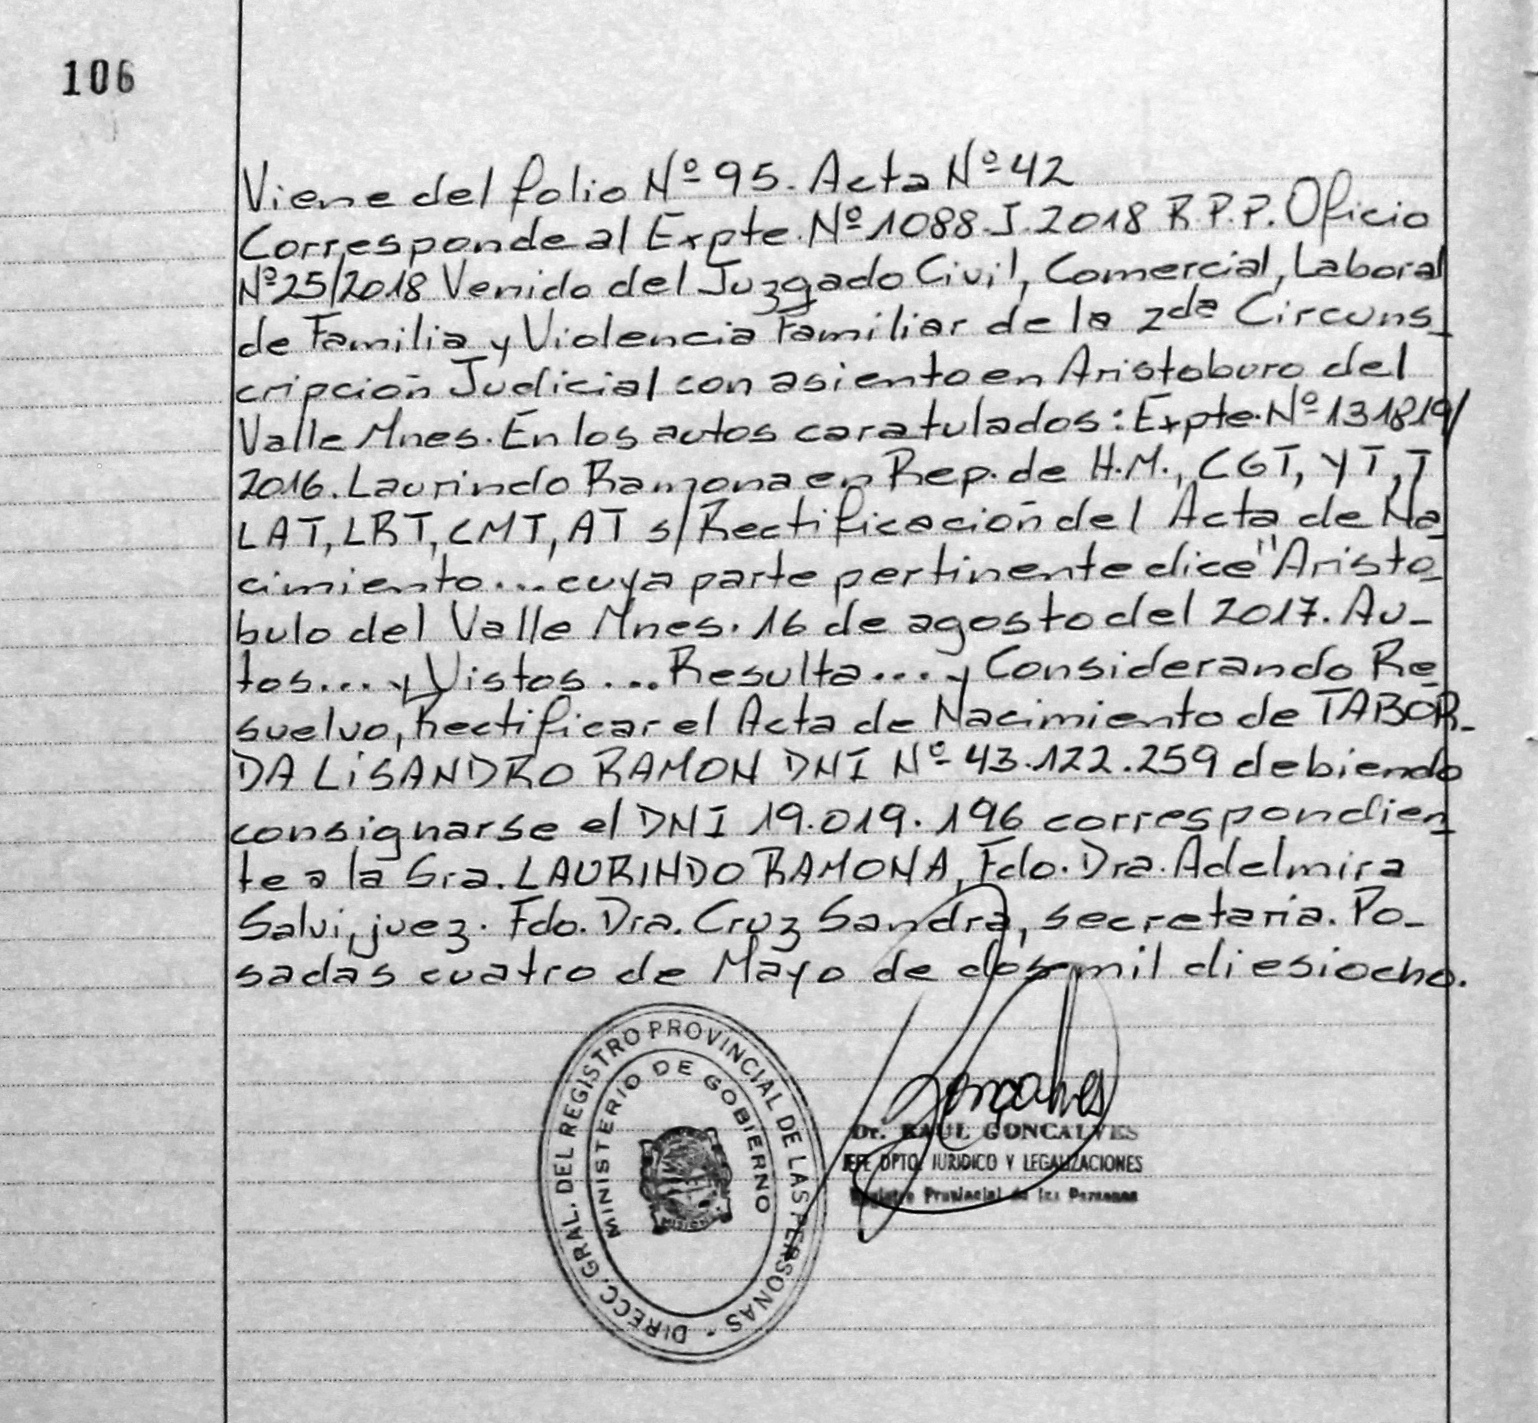 106
Viene del folio Nº 95. Acta Nº 42
Corresponde al Expte. Nº 1088.J.2018 R.P.P. Oficio
Nº 25/2018 Venido del Juzgado Civil, Comercial, Laboral
de Familia y Violencia Familiar de la 2da Circuns_
cripción Judicial con asiento en Aristoburo del
Valle Mnes. En los autos caratulados: Expte. Nº 131819/
2016. Laurindo Ramona en Rep. de H.M., CGT, YT, T
LAT, LRT, CMT, AT s/Rectificación del Acta de Na_
cimiento... cuya parte pertinente dice "Aristo_
bulo del Valle Mnes. 16 de agosto del 2017. Au_
tos... y Vistos ... Resulta... y Considerando Re_
suelvo, Rectificar el Acta de Nacimiento de TABOR_
DA LiSANDRO RAMON DNI Nº 43.122.259 debiendo
consignarse el DNI 19.019.196 correspondien_
te a la Sra. LAURINDO RAMONA, Fdo. Dra. Adelmira
Salvi, juez. Fdo. Dra. Cruz Sandra, secretaria. Po_
sadas cuatro de Mayo de dos mil diesiocho.
DIRECC. GRAL. DEL REGISTRO PROVINCIAL DE LAS PERSONAS -
MINISTERIO DE GOBIERNO
Goncalves
Dr. RAUL GONCALVES
JEFE DPTO. JURIDICO Y LEGALIZACIONES
Registro Provincial de las Personas